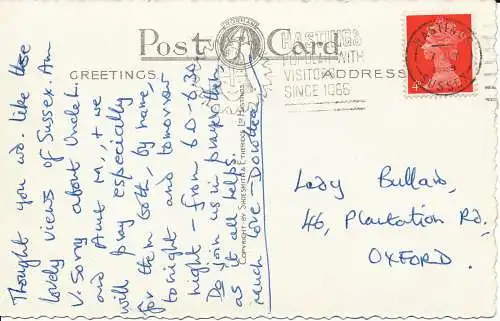 Post Card
GREETINGS.
ADDRESS
HASTINGS
POPULAR WITH
VISITORS
SINCE 1066
HASTINGS
SUSSEX
4
COPYRIGHT BY SHOESMITH & ETHERIDGE LTD HASTINGS
Thought you wd. like these
lovely views of Sussex. Am
v. sorry about Uncle L.
and Aunt M., & we
will pray especially
for them both, by name,
tonight and tomorrow
night - from 6.0 - 6.30
Do join us in prayer then
as it all helps.
Much love - Dorothea
Lady Bullard,
46, Plantation Rd,
OXFORD.